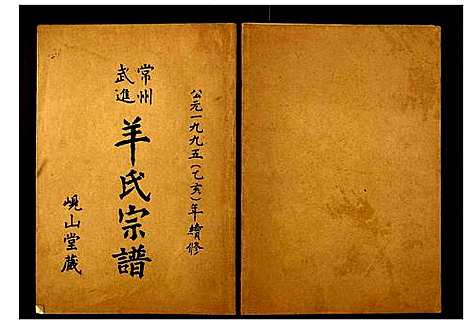 公元一九九五(乙亥)年續修
常州
武進
羊氏宗譜
峴山堂藏